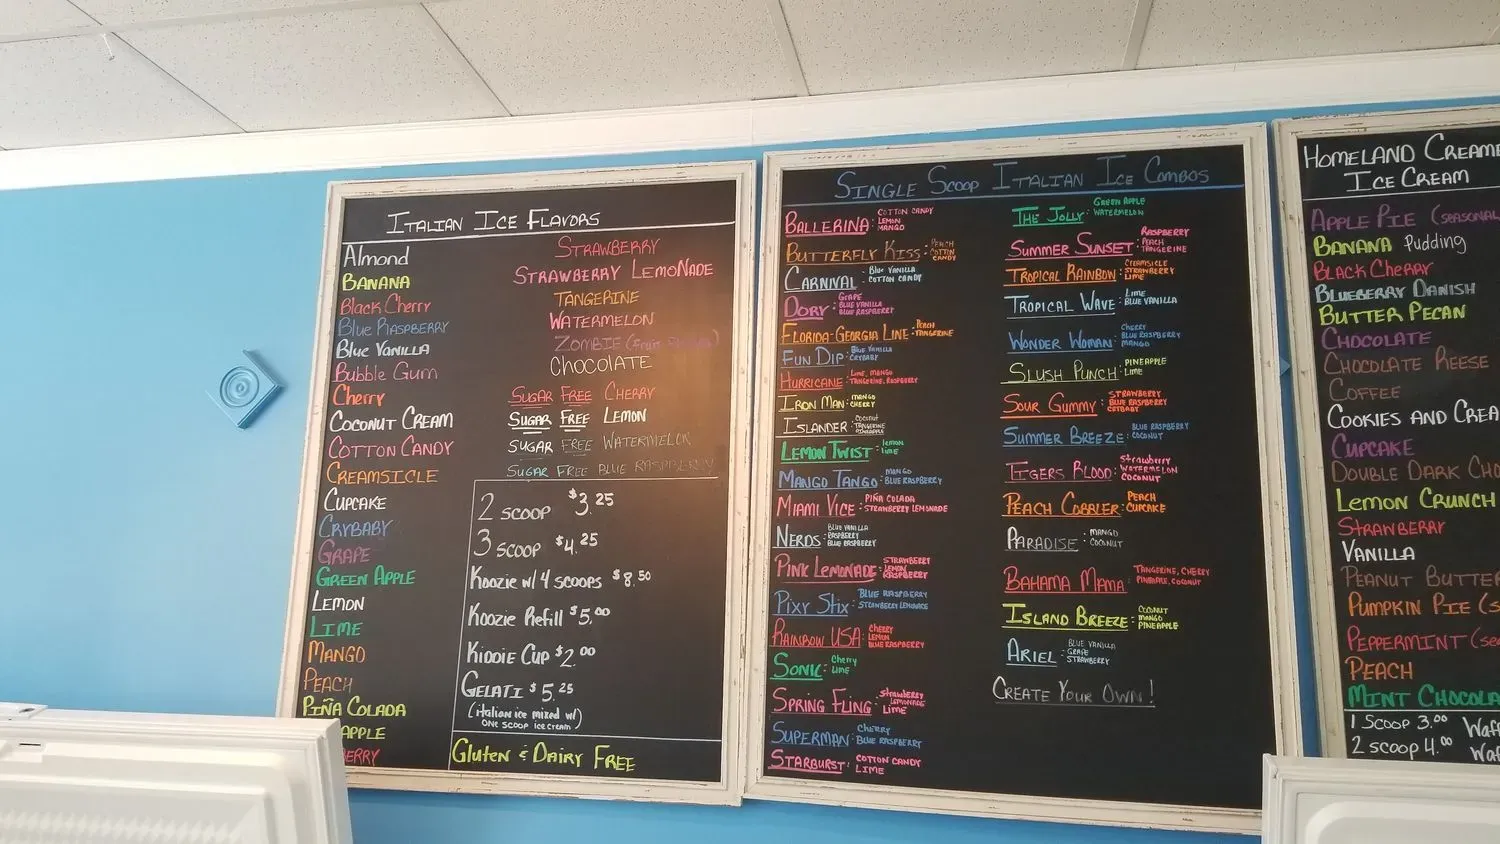 Italian Ice Flavors
Almond
Banana
Black Cherry
Blue Raspberry
Blue Vanilla
Bubble Gum
Cherry
Coconut Cream
Cotton Candy
Creamsicle
Cupcake
Crybaby
Grape
Green Apple
Lemon
Lime
Mango
Peach
Piña Colada
apple
berry
Strawberry
Strawberry Lemonade
Tangerine
Watermelon
Zombie
Chocolate
Sugar Free Cherry
Sugar Free Lemon
Sugar Free Watermelon
Sugar Free Blue Raspberry
2 scoop $3.25
3 scoop $4.25
Koozie w/ 4 scoops $8.50
Koozie Refill $5.00
Kiddie Cup $2.00
Gelati $5.25
(italian ice mixed w/)
one scoop ice cream)
Gluten & Dairy Free
Single Scoop Italian Ice Combos
Ballerina: Cotton Candy
Lemon
Mango
Butterfly Kiss: Peach
Cotton
Candy
Carnival: Blue Vanilla
Cotton Candy
Dory: Grape
Blue Vanilla
Blue Raspberry
Florida-Georgia Line: Peach
Tangerine
Fun Dip: Blue Vanilla
Crybaby
Hurricane: Lime, Mango
Tangerine, Raspberry
Iron Man: Mango
Cherry
Islander: Coconut
Tangerine
Pineapple
Lemon Twist: Lemon
Lime
Mango Tango: Mango
Blue Raspberry
Miami Vice: Piña Colada
Strawberry Lemonade
Nerds: Blue Vanilla
Raspberry
Blue Raspberry
Pink Lemonade: Strawberry
Lemon
Raspberry
Pixy Stix: Blue Raspberry
Strawberry Lemonade
Rainbow USA: Cherry
Lemon
Blue Raspberry
Sonic: Cherry
Lime
Spring Fling: Strawberry
Lemonade
Lime
Superman: Cherry
Blue Raspberry
Starburst: Cotton Candy
Lime
The Jolly: Green Apple
Watermelon
Summer Sunset: Raspberry
Peach
Tangerine
Tropical Rainbow: Creamsicle
Strawberry
Lime
Tropical Wave: Lime
Blue Vanilla
Wonder Woman: Cherry
Blue Raspberry
Mango
Slush Punch: Pineapple
Lime
Sour Gummy: Strawberry
Blue Raspberry
Crybaby
Summer Breeze: Blue Raspberry
Coconut
Tigers Blood: Strawberry
Watermelon
Coconut
Peach Cobbler: Peach
Cupcake
Paradise: Mango
Coconut
Bahama Mama: Tangerine, Cherry
Pineapple, Coconut
Island Breeze: Coconut
Mango
Pineapple
Ariel: Blue Vanilla
Grape
Strawberry
Create Your Own!
Homeland Creame
Ice Cream
Apple Pie (seasonal
Banana Pudding
Black Cherry
Blueberry Danish
Butter Pecan
Chocolate
Chocolate Reese
Coffee
Cookies and Crea
Cupcake
Double Dark Cho
Lemon Crunch
Strawberry
Vanilla
Peanut Butter
Pumpkin Pie (s
Peppermint (sea
Peach
Mint Chocola
1 Scoop 3.00 Waff
2 scoop 4.00 Waf